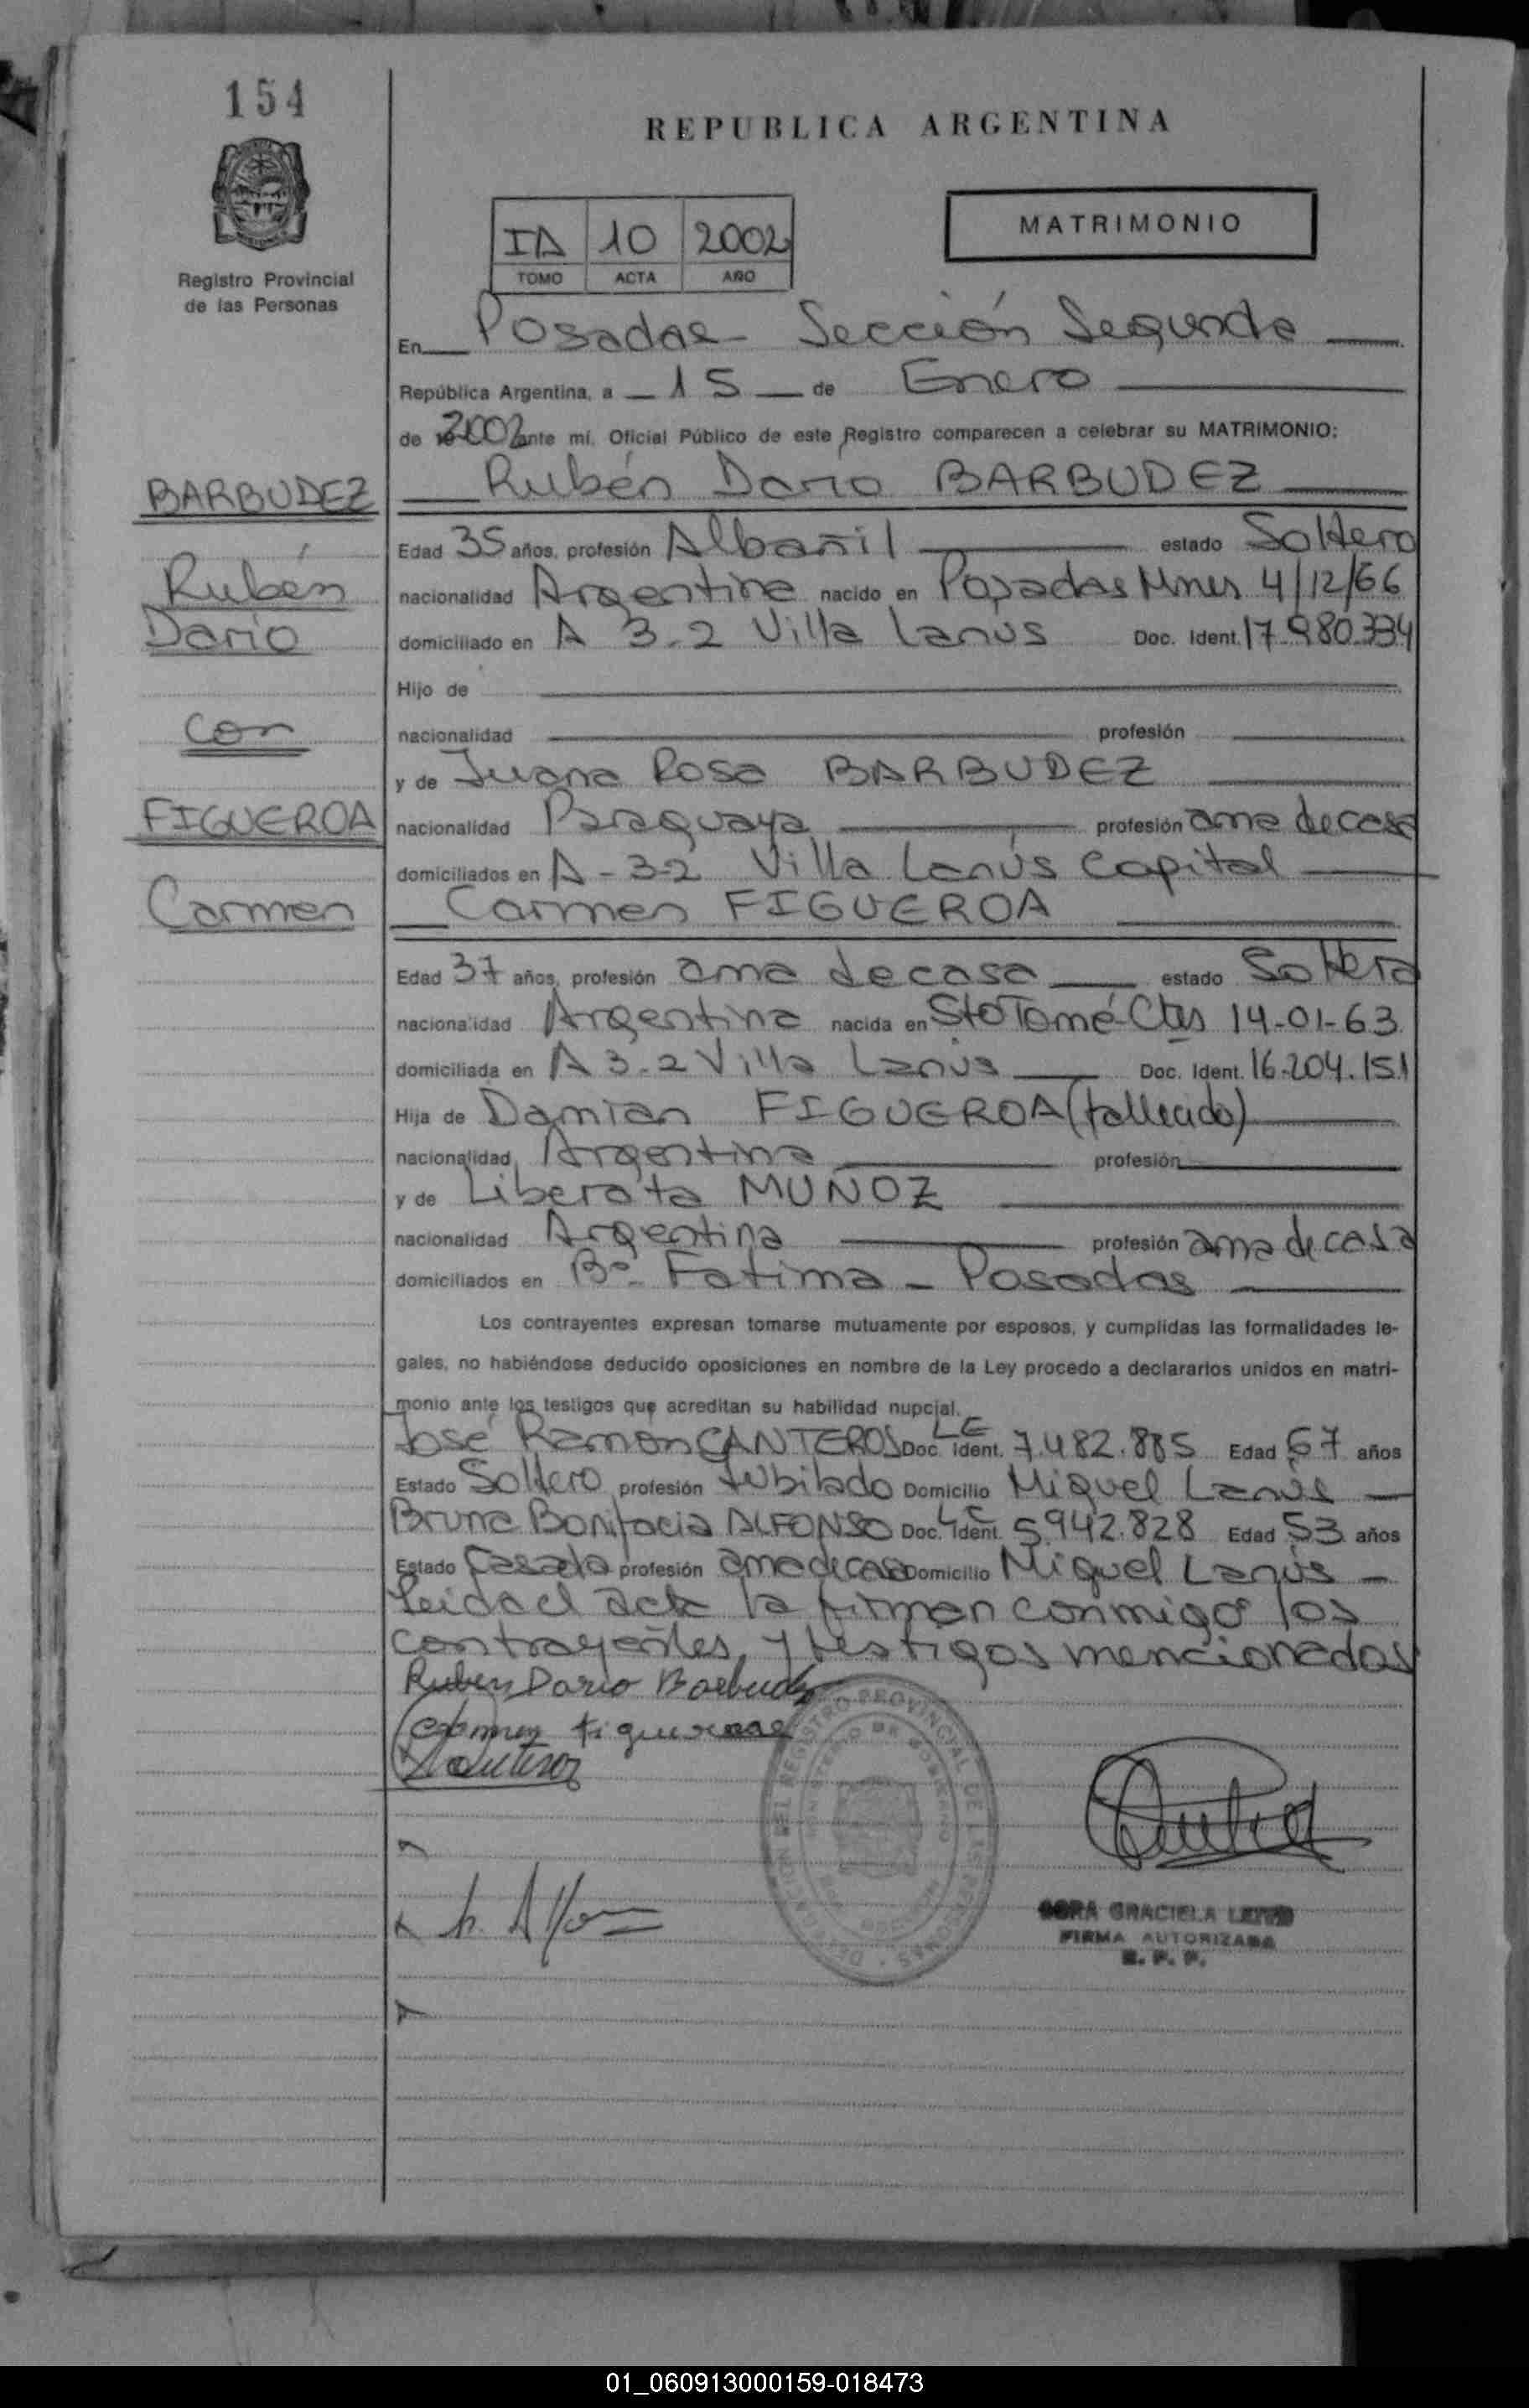 154
REPUBLICA ARGENTINA
MATRIMONIO
IA 10 2002
TOMO ACTA AÑO
Registro Provincial
de las Personas
En Posadas - Sección Segunda
República Argentina, a 15 de Enero
de 2002 ante mí, Oficial Público de este Registro comparecen a celebrar su MATRIMONIO:
BARBUDEZ
Rubén
Dario
con
FIGUEROA
Carmen
Rubén Dario BARBUDEZ
Edad 35 años, profesión Albañil estado Soltero
nacionalidad Argentina nacido en Posadas Mnes 4/12/66
domiciliado en A 3-2 Villa Lanus Doc. Ident. 17.980.334
Hijo de
nacionalidad profesión
y de Juana Rosa BARBUDEZ
nacionalidad Paraguaya profesión ama de casa
domiciliados en A-32 Villa Lanús Capital
Carmen FIGUEROA
Edad 37 años, profesión ama de casa estado Soltera
nacionalidad Argentina nacida en Sto Tomé-Ctes 14-01-63
domiciliada en A 3-2 Villa Lanús Doc. Ident. 16.204.151
Hija de Damian FIGUEROA (fallecido)
nacionalidad Argentina profesión
y de Liberata MUÑOZ
nacionalidad Argentina profesión ama de casa
domiciliados en Bº Fatima - Posadas
Los contrayentes expresan tomarse mutuamente por esposos, y cumplidas las formalidades le-
gales, no habiéndose deducido oposiciones en nombre de la Ley procedo a declararlos unidos en matri-
monio ante los testigos que acreditan su habilidad nupcial.
José Ramon CANTEROS Doc. Ident. LE 7.482.885 Edad 67 años
Estado Soltero profesión Jubilado Domicilio Miguel Lanús
Bruna Bonifacia ALFONSO Doc. Ident. LC 5.942.828 Edad 53 años
Estado Casada profesión ama de casa Domicilio Miguel Lanús
Leida el acta la firman conmigo los
contrayentes y testigos mencionados
Ruben Dario Barbudez
Carmen Figueroa
B. Alfonso
GRACIELA
FIRMA AUTORIZADA
R. P. P.
01_060913000159-018473